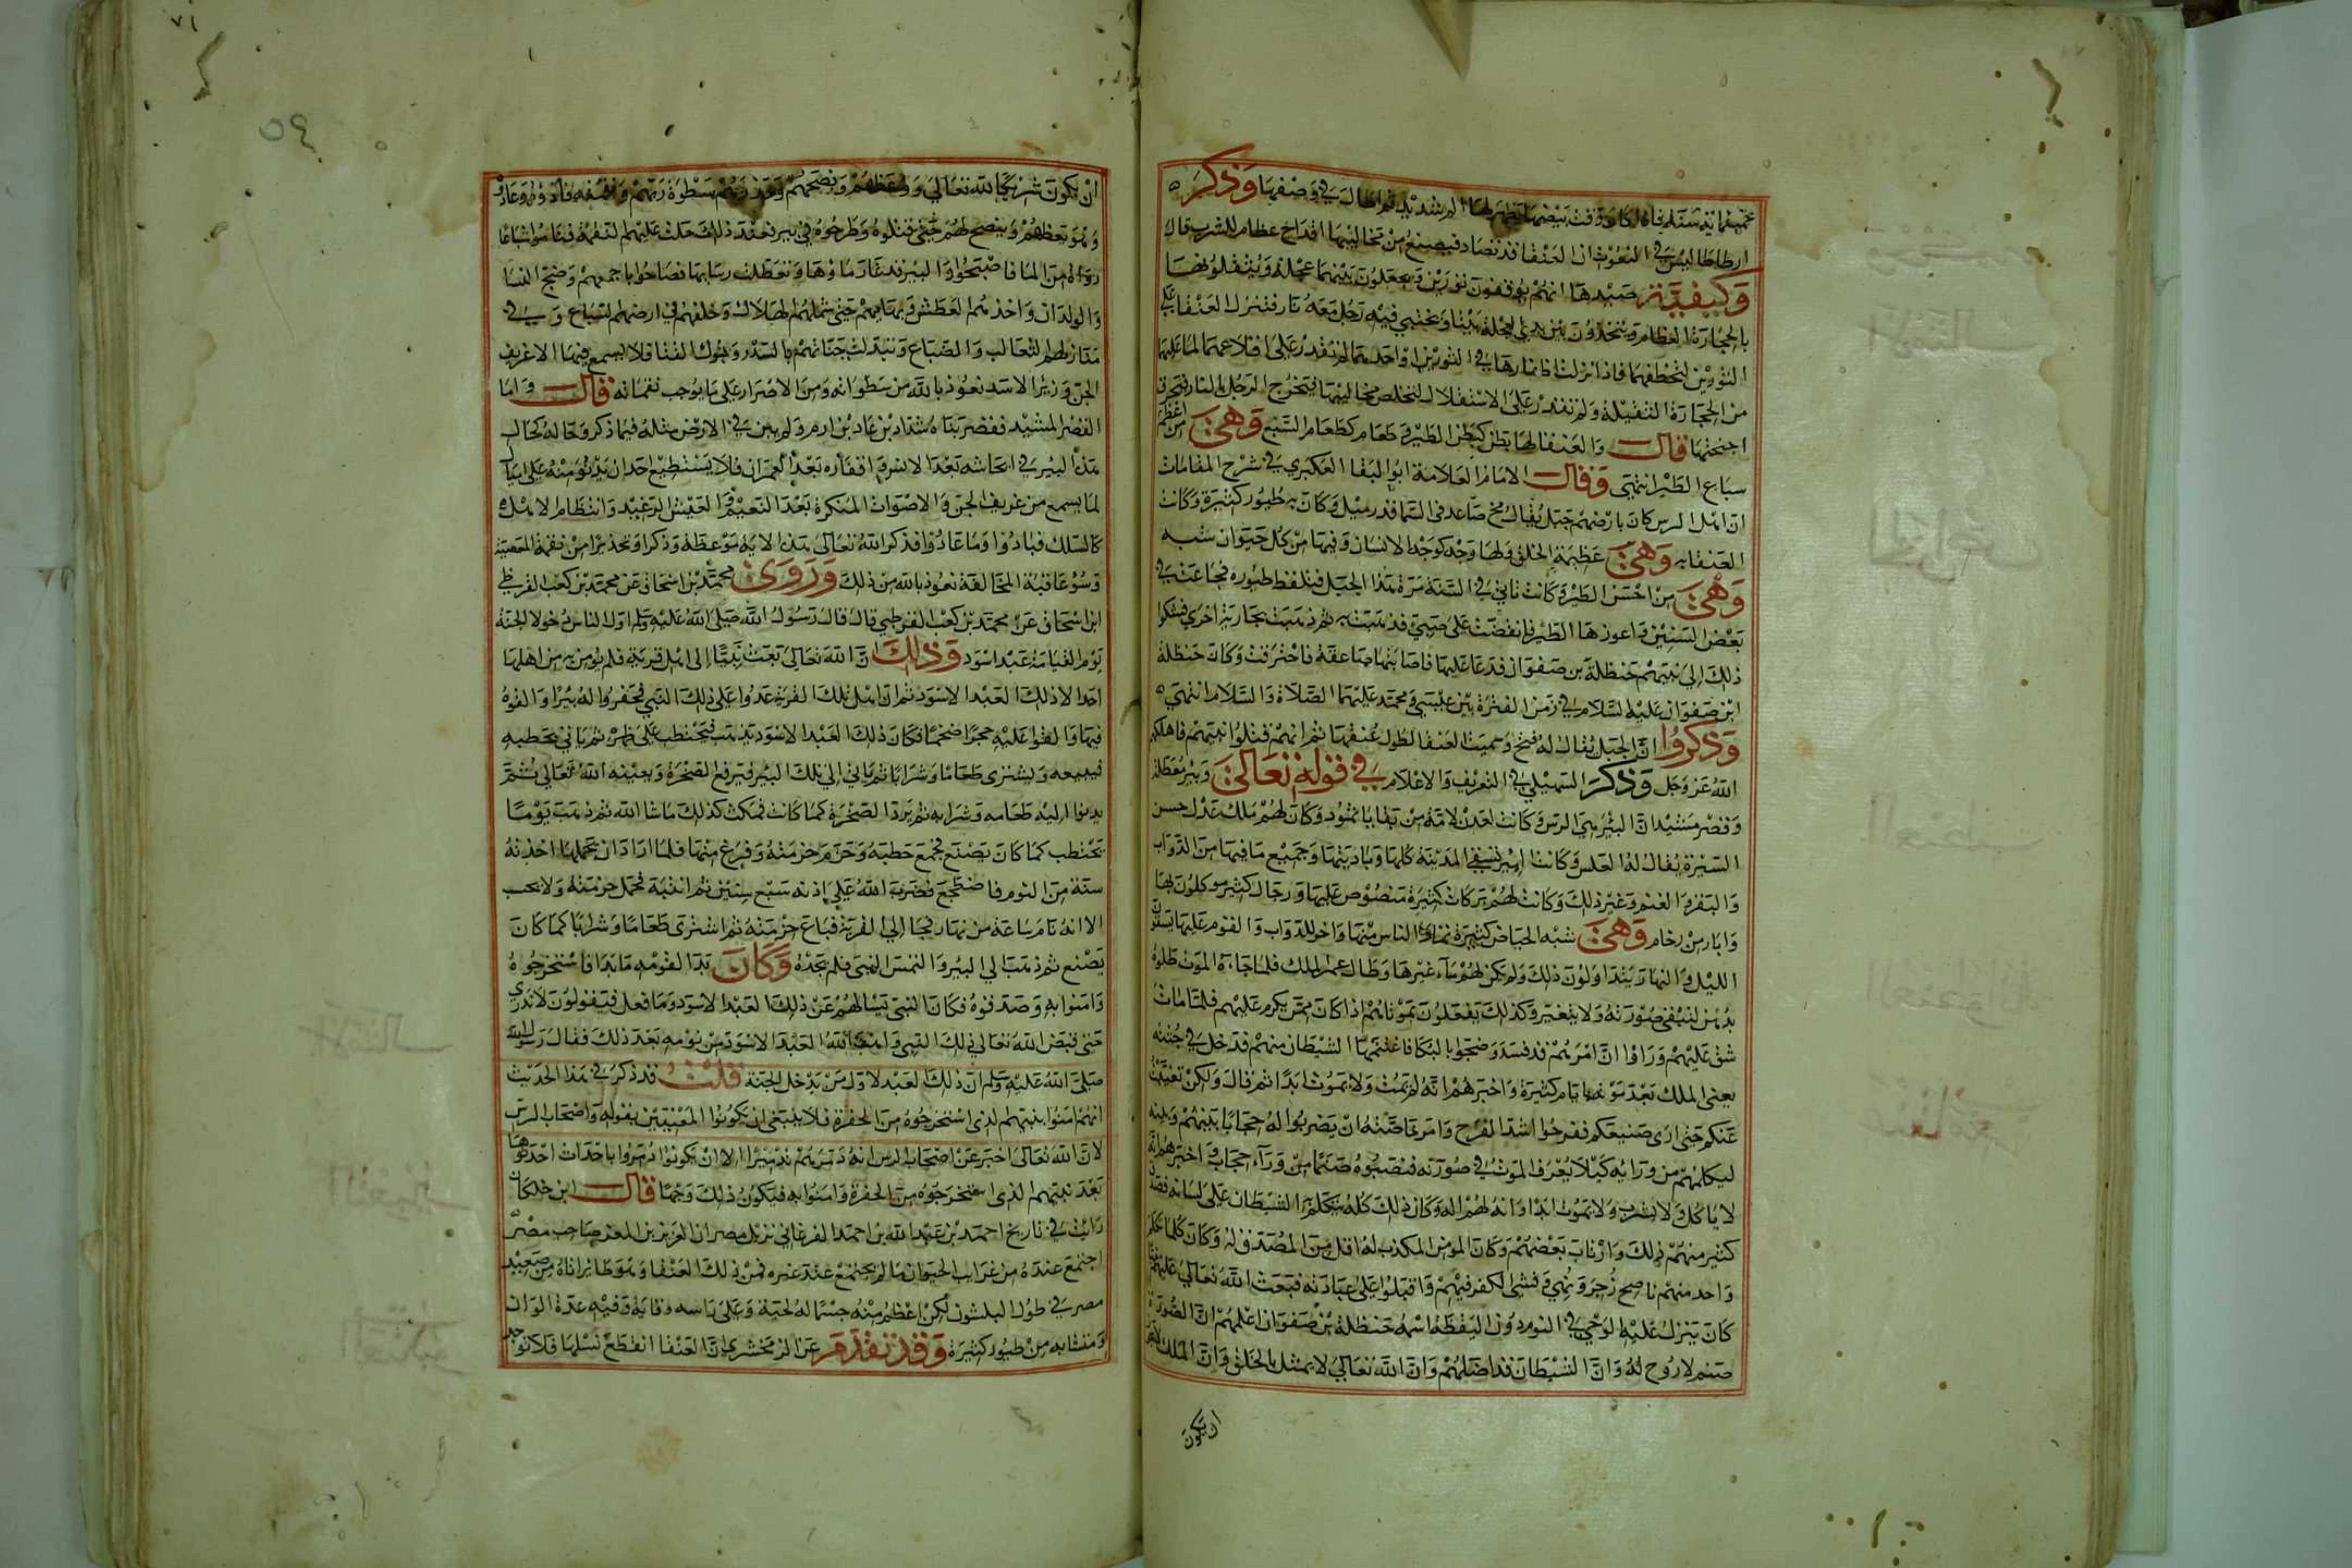 ارطاطاليس في النعوت ان العنقا قد تصاد فيصنع من مخاليبها اقداح عظام للشرب قال
وكيفية صيدها انهم يوقفون ثورين ويجعلون بينهما عجلة ويثقلونها
بالحجارة العظام ويتخذون بين يدي العجلة بيتا ويختبي فيه رجل معه نار فتنزل العنقا على
الثورين لتخطفهما فاذا نزلت اظفارها في الثورين او احدهما لم تقدر على اقلاعهما لما عليهما
من الحجارة الثقيلة ولم تقدر على الاستقلال لتخلص مخاليبها فيخرج الرجل بالنار فيحرق
اجنحتها قال والعنقا لها بطن كبطن الطير وطعام كطعام السبع وهي من اعظم
سباع الطير انتهى وقال الامام العلامة ابو البقا العكبري في شرح المقامات
ان اهل الرس كان بارضهم جبل يقال له مخ صاعد في السما قدر ميل وكان به طيور كثيرة وكانت
العنقا به وهي عظيمة الخلق ولها وجه كوجه الانسان وفيها من كل حيوان شبه
وهي من احسن الطير وكانت تاتي في السنة مرة هذا الجبل فتلتقط طيوره فجاعت في
بعض السنين واعوزها الطير فانقضت على صبي فذهبت به ثم ذهبت بجارية اخرى فشكوا
ذلك الى نبيهم حنظلة بن صفوان فدعا عليها فاصابتها صاعقة فاحترقت وكان حنظلة
ابن صفوان عليه السلام في زمن الفترة بين عيسى ومحمد عليهما الصلاة والسلام انتهى
وذكروا ان الجبل يقال له فتخ وسميت العنقا لطول عنقها ثم انهم قتلوا نبيهم فاهلكهم
الله عز وجل وذكر السهيلي في التعريف والاعلام في قوله تعالى وبير معطلة
وقصر مشيد ان البئر هي الرس وكانت بعدن لامة من بقايا ثمود وكان لهم ملك عدل حسن
السيرة يقال له العلس وكانت البير تسقي المدينة كلها وباديتها وجميع ما فيها من الدواب
والبقر والغنم وغير ذلك وكانت لهم بركات كثيرة منصوص عليها ورجال كثير موكلون بها
وابار من رخام وهي شبه الحياض كثيرة تملا الناس منها واخر للدواب والقوم عليها يستقون
الليل والنهار يتداولون ذلك ولم يكن لهم ماء غيرها وطال عمر الملك فلما جاءه الموت طلوه
بدهن لتبقى صورته ولا يتغير وكذلك يفعلون بموتاهم اذا كان ممن يكرم عليهم فلما مات
شق عليهم وراوا ان امرهم قد فسد وضجوا بالبكا فاغتنمها الشيطان منهم فدخل في جثته
يعني الملك بعد موته بايام كثيرة واخبرهم انه لم يمت ولا يموت ابدا ثم قال ولكن تغيبت
عنكم حتى ارى صنيعكم ففرحوا اشد الفرح وامر خاصته ان يضربوا له حجابا بينهم وبينه
ليكلمهم من ورايه كيلا يعرف الموت في صورته فنصبوه صنما من وراء حجاب واخبرهم انه
لا ياكل ولا يشرب ولا يموت ابدا وانه لهم اله وكان ذلك كله يتكلم الشيطان على لسانه فصدق
كثير منهم ذلك وارتاب بعضهم وكان المومن المكذب له اقل من المصدق له وكان كلما تكلم
واحد منهم ناصح زجر ونهي وفشى الكفر فيهم واقبلوا على عبادته فبعث الله تعالى عليهم
كان ينزل عليه الوحي في النوم دون اليقظة اسمه حنظلة بن صفوان اعلمهم ان الصورة
صنم لا روح له وان الشيطان قد اضلهم وان الله تعالى لا يمثل بالخلق وان الملك
ان يكون
٧١
٥٤
ان يكون شريكا لله تعالى ووعظهم ونصحهم وحذرهم سطوة ربهم ونقمته فاذوه وعادوه
وهو يعظهم وينصح لهم حتى قتلوه وطرحوه في بير فعند ذلك حلت عليهم النقمة فباتوا شباعا
رواء من الما فاصبحوا والبير قد غار ماوها وتعطلت رشاها فصاحوا باجمعهم وضج النسا
والولدان واخذهم العطش وبهايمهم حتى شملهم الهلاك وخلفهم في ارضهم السباع وفي
منازلهم الثعالب والضباع وتبدلت جناتهم بالسدر وشوك القتا فلا يسمع فيها الا عزيف
الجن وزئير الاسد نعوذ بالله من سطوانه ومن الاصرار على ما يوجب نقماته قال واما
القصر المشيد فقصر بناه شداد بن عاد بن ارم ولم يبن في الارض مثله فيما ذكر وحاله كحال
هذا البير في ايحاشه بعد الانس واقفاره بعد العمران فلا يستطيع احد ان يدنو منه على اميال
لما يسمع من عزيف الجن والاصوات المنكرة بعد النعيم والعيش الرغيد وانتظام الاهل
كالسلك فبادوا وما عادوا فذكر الله تعالى هذا الاية موعظة وذكرا وتحذيرا من نقمة المعصية
وسوء عاقبة المخالفة نعوذ بالله من ذلك وروى محمد بن اسحاق عن محمد بن كعب القرظي
ابن اسحاق عن محمد بن كعب القرطبي قال قال رسول الله صلى الله عليه وسلم اول الناس دخولا الجنة
يوم القيامة عبد اسود وذلك ان الله تعالى بعث نبيا الى اهل قرية فلم يومن به من اهلها
احد الا ذلك العبد الاسود ثم ان اهل تلك القرية عدوا على ذلك النبي فحفروا له بيرا والقوه
فيها والقوا عليه حجرا ضخما فكان ذلك العبد الاسود يذهب فيحتطب على ظهره ثم ياتي بحطبه
فيبيعه ويشتري طعاما وشرابا ثم ياتي الى تلك البير فيرفع الصخرة ويعينه الله تعالى ثم
يدلي اليه طعامه وشرابه ثم يرد الصخرة كما كانت فمكث كذلك ما شا الله ثم ذهب يوما
يحتطب كما كان يصنع فجمع حطبه وحزم حزمته وفرغ منها فلما اراد ان يحملها اخذته
سنة من النوم فاضطجع فضرب الله على اذنه سبع سنين ثم انتبه فحمل حزمته ولا يحسب
الا انه نام ساعة من نهار فجا الى القرية فباع حزمته ثم اشترى طعاما وشرابا كما كان
يصنع ثم ذهب الى البير والتمس النبي فلم يجده وكان بدا لقومه ما بدا فاستخرجوه
وامنوا به وصدقوه فكان النبي يسالهم عن ذلك العبد الاسود وما فعل فيقولون لا ندري
حتى قبض الله تعالى ذلك النبي وايقظ الله العبد الاسود من نومه بعد ذلك فقال رسول الله
صلى الله عليه وسلم ان ذلك العبد لاول من يدخل الجنة قلت قد ذكر في هذا الحديث
انهم امنوا بنبيهم الذي استخرجوه من الحفرة فلا ينبغي ان يكونوا المعنيين بقوله واصحاب الرس
لان الله تعالى اخبر عن اصحاب الرس انه دمرهم تدميرا الا ان يكونوا دمروا باحداث احدثوها
بعد نبيهم الذي استخرجوه من الحفرة وامنوا به فيكون ذلك وجها قال ابن خلكان
رايت في تاريخ احمد بن عبد الله بن احمد الفرغاني نزيل مصر ان العزيز بن المعز صاحب مصر
اجتمع عنده من غرايب الحيوان ما لم يجتمع عند غيره فمن ذلك العنقا وهو طائر اتاه من صعيد
مصر في طول البلشون لكن اعظم منه جسما له لحية وعلى راسه وقاية وفيه عدة الوان
ومشابه من طيور كثيرة وقد تقدم عن الزمخشري ان العنقا انقطع نسلها فلا توجد